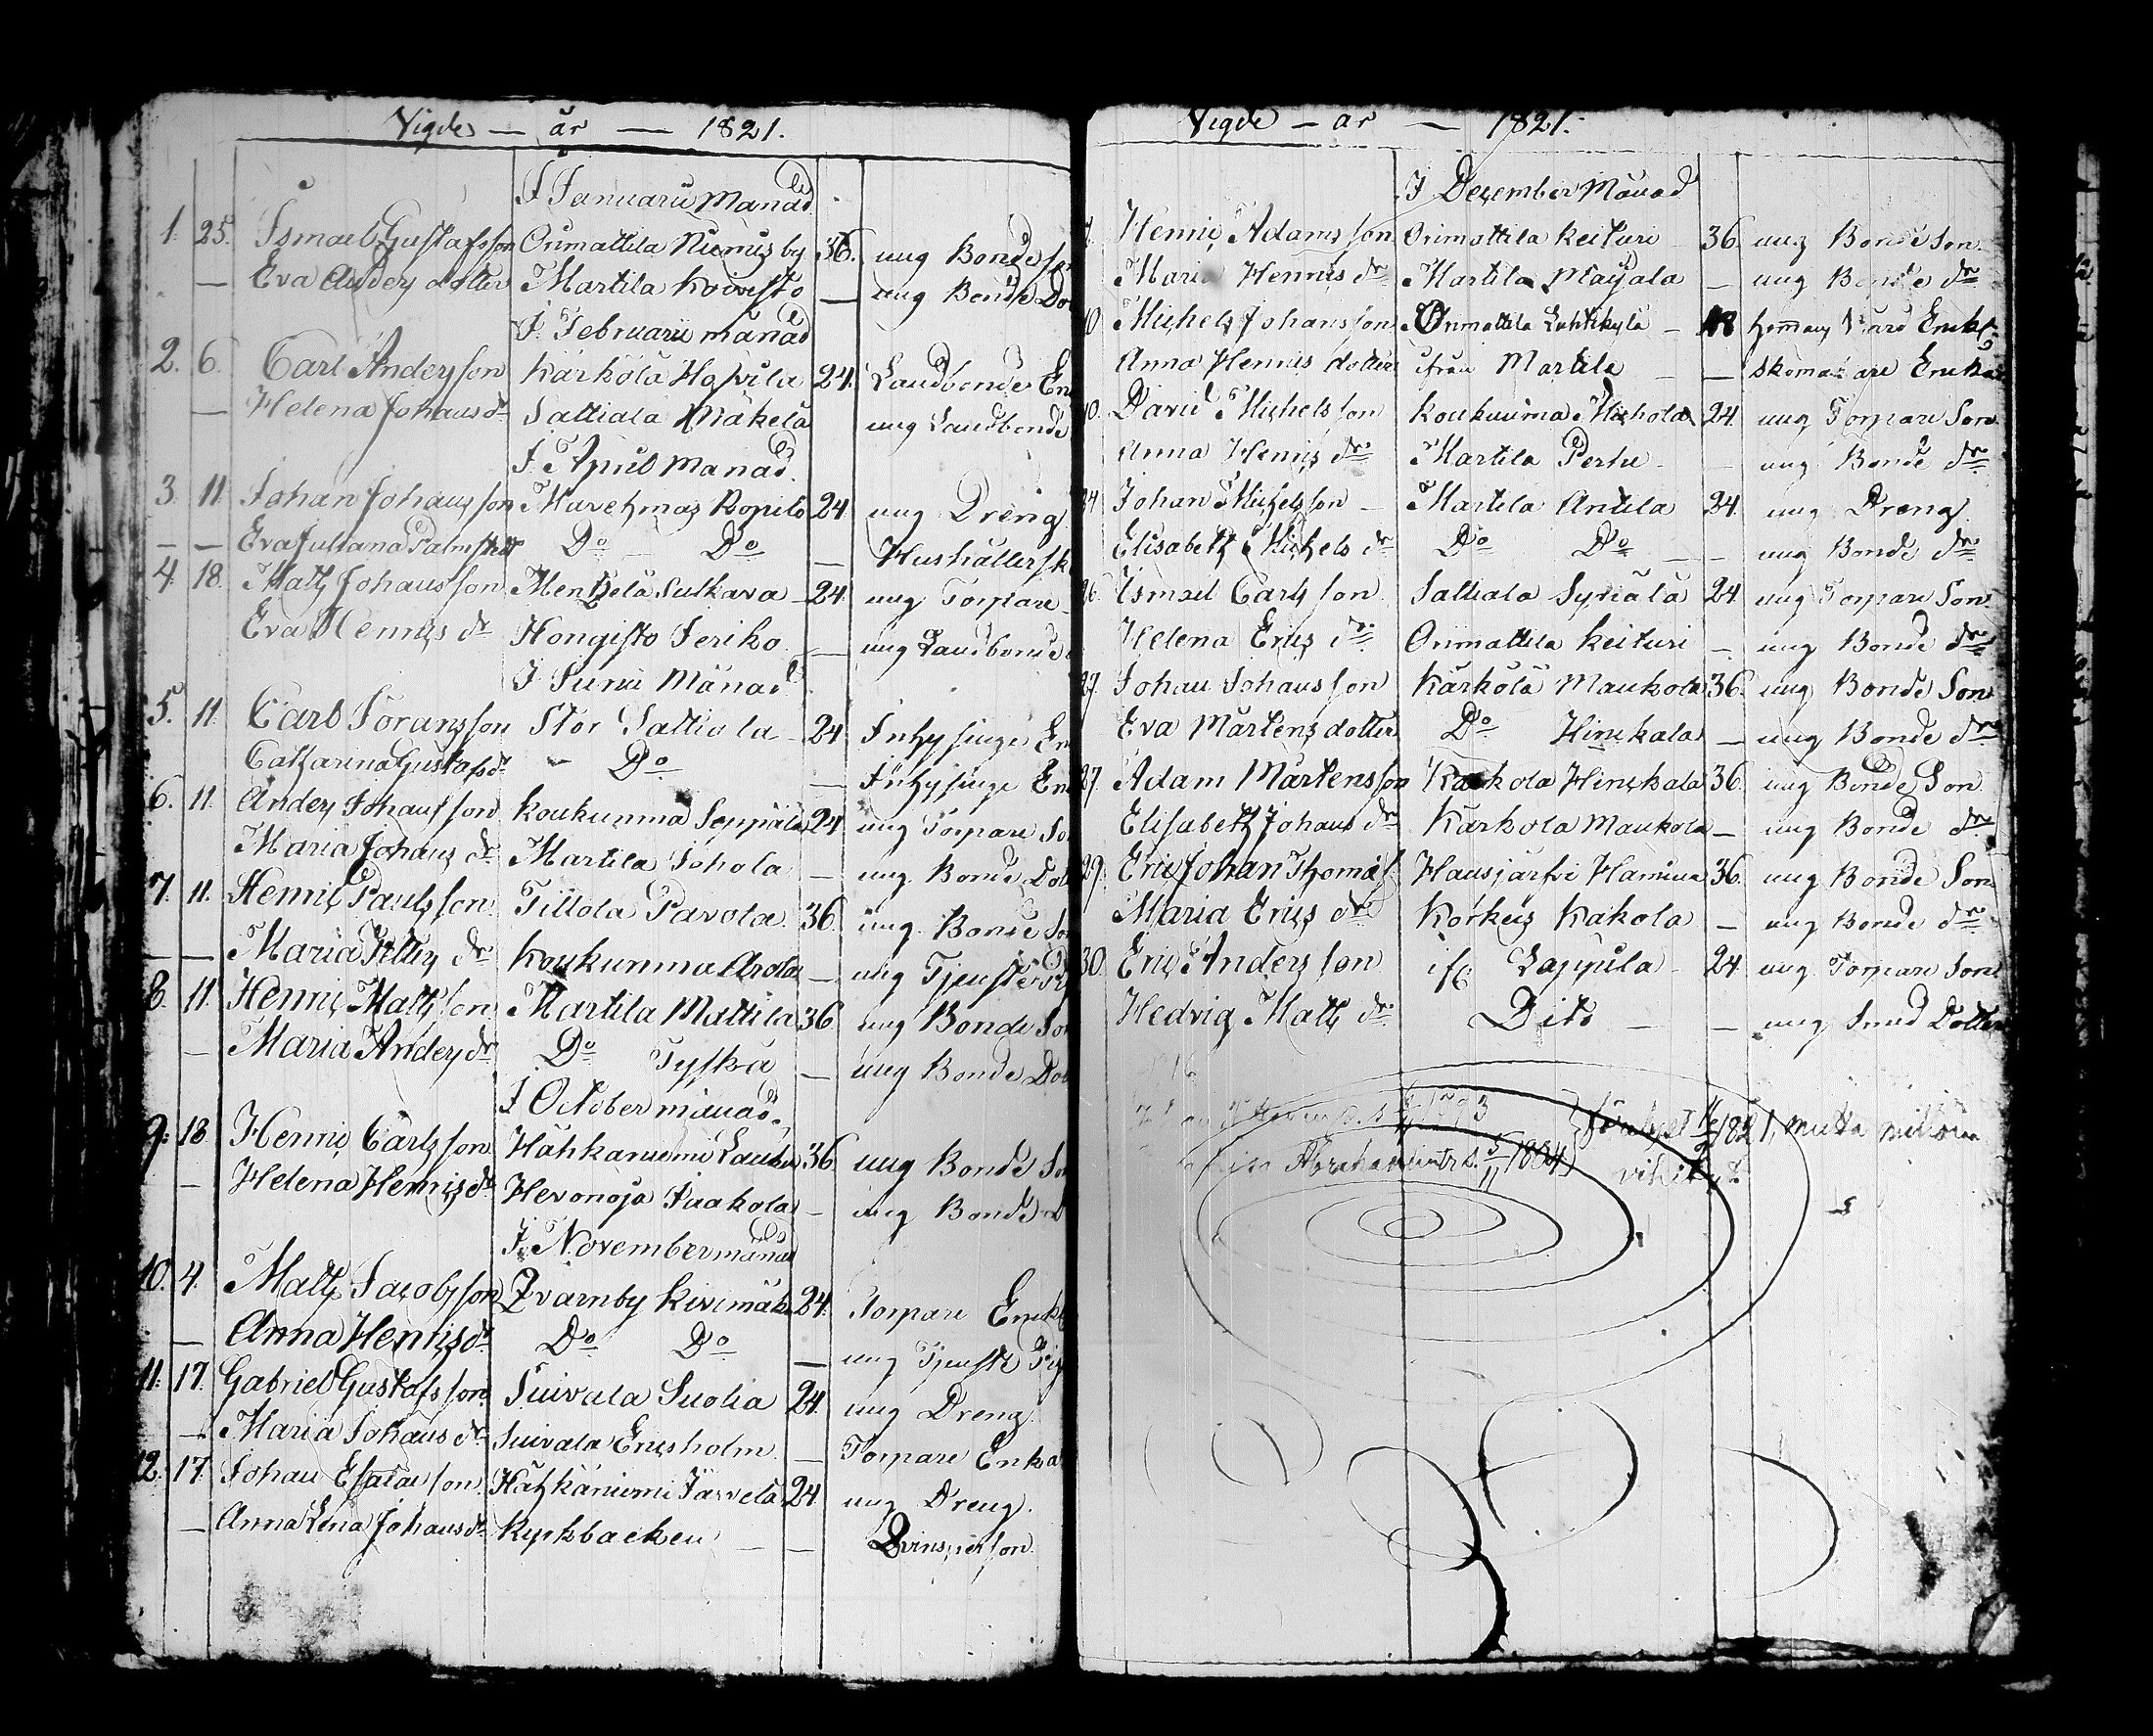 Vigde — år — 1821.
I Januarii Månad
1. 25. Ismael Gustafsson Orimattila Niemis by 36. ung Bonde son
— Eva Anders dotter Martila Koivisto — ung Bonde Do
I Februarii månad
2. 6. Carl Andersson Kärkölä Hofvila 24. Landbonde En
— Helena Johans dr Sattiala Mäkelä ung Landbonde
I April Månad
3. 11. Johan Johansson Mavehmas Ropilo 24 ung Dreng
— — Eva Juliana Palmstedt Do Do — Hushållersk
4. 18. Matts Johansson Menzelä Sulkava 24. ung Torpare
Eva Henrics dr Hongisto Jeriko — ung Landbonde
I Junii Månad
5. 11. Carl Göransson Stor Sattiala 24 Inhysinge En
Catharina Gustafs dr Do — Inhysinge En
6. 11. Anders Johansson Koukunma Seppälä 24 ung Torpare So
Maria Johans dr Martila Johola — ung Bonde Dot
7. 11. Henric Paulsson Tillola Pavola 36. ung Bonde Son
— — Maria Petters dr Koukunma Arola — ung Tjenste
8. 11. Henric Matsson Martila Mattila 36 ung Bonde Son
— Maria Anders dr Do Tyskä — ung Bonde Dot
I October månad.
9. 18 Henric Carlsson Hähkäniemi 36 ung Bonde Son
— Helena Henrics dr Hevonoja Jaakola — ung Bonde D
I November månad
10. 4. Matts Jacobsson Qvarnby Kivimäki 24. Torpare Enkl
— Anna Henrics dr Do Do — ung Tjenste Pig
11. 17. Gabriel Gustafsson Suivala Suolia 24. ung Dreng
— Maria Johans dr Suivala Ericsholm — Torpare Enka
12. 17. Johan Esaiasson Hähkäniemi Järvelä 24 ung Dreng.
— Anna Lena Johans dr Ryckbacken — —
Vigde — år — 1821.
I December Månad
Henric Adamsson Orimattila Keituri 36. ung Bonde Son
Maria Henrics dr Martila Maijala — ung Bonde dr
10. Michel Johansson Orimattila Luhtikylä — 48
Anna Henrics dotter ifrån Martila — — Skomakare Enka
10. David Michelsson Koukunma Michola 24. ung Torpare Son
Anna Henrics dr Martila Perhe — ung Bonde dr
24. Johan Michelsson — Martila Antila 24. ung Dreng
Elisabeth Michels dr Do Do — — ung Bonde dr
26. Ismael Carlsson Sattiala Syriälä 24. ung Torpare Son
Helena Erics dr Orimattila Keituri — ung Bonde dr
27. Johan Johansson Kärkölä Maukola 36. ung Bonde Son
Eva Mårtens dotter Do Hinckala — ung Bonde dr
27. Adam Mårtensson Kärkölä Hinckala 36. ung Bonde Son
Elisabeth Johans dr Kärkölä Maukola — ung Bonde dr
29. Eric Johan Thomas Hausjärfvi Hamina 36. ung Bonde Son
Maria Erics dr Korkeis Kakola — ung Bonde dr
30. Eric Andersson ifr Lappila 24 ung Torpare Son
Hedvig Matts dr Dito — — ung Smed Dotter
16
1821, mutta milloin
Abrahamintr s. 5/11 1804 vihitty?